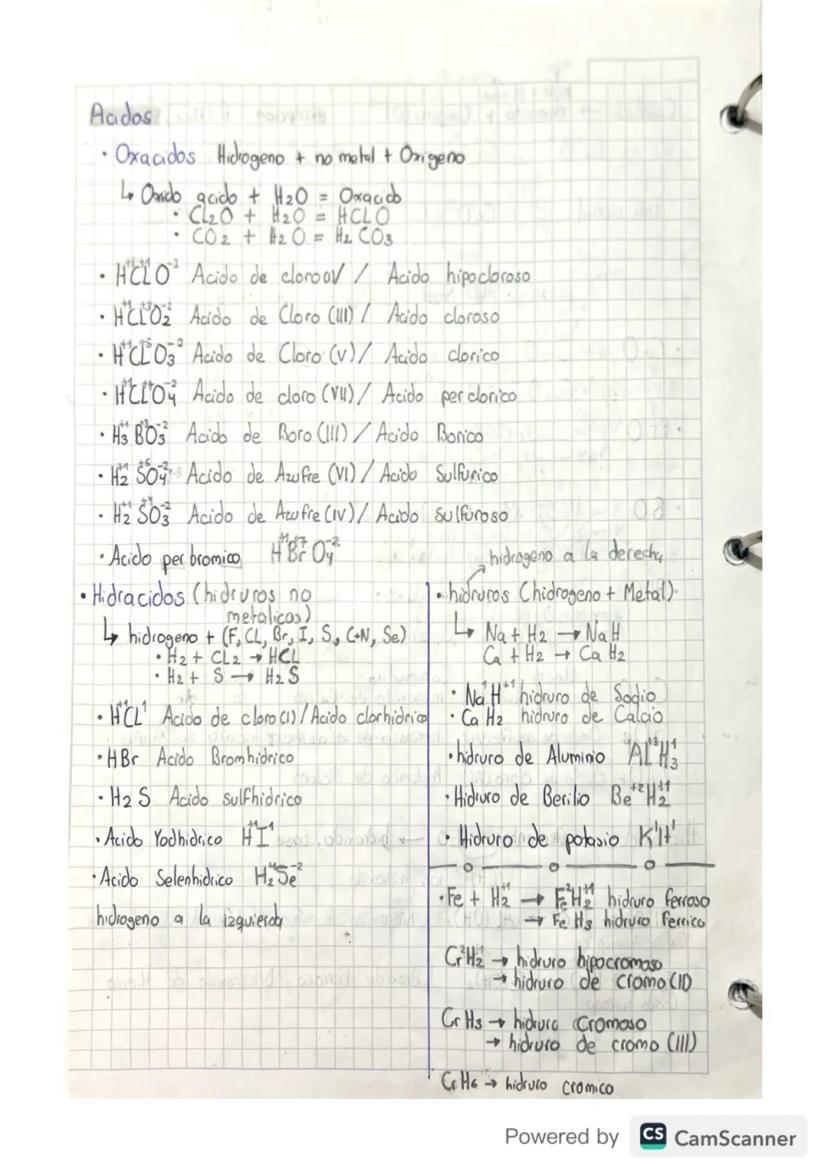 Acidos
· Oxacidos Hidrogeno + no metal + Oxigeno
↳ Oxido acido + H2O = Oxacido
· CL2O + H2O = HCLO
· CO2 + H2O = H2CO3
· HCLO⁻² Acido de cloro / Acido hipocloroso
· HCLO2⁻² Acido de Cloro (III) / Acido cloroso
· HCLO3⁻² Acido de Cloro (V) / Acido clorico
· HCLO4⁻² Acido de cloro (VII) / Acido perclorico
· H3BO3⁻² Acido de Boro (III) / Acido Borico
· H2SO4⁻² Acido de Azufre (VI) / Acido Sulfurico
· H2SO3⁻² Acido de Azufre (IV) / Acido sulfuroso
· Acido perbromico H⁺¹Br⁺⁷O4⁻²
· Hidracidos (hidruros no
metalicos)
↳ hidrogeno + (F, CL, Br, I, S, C+N, Se)
· H2 + CL2 → HCL
· H2 + S → H2S
· H⁺¹CL¹ Acido de cloro (I) / Acido clorhidrico
· HBr Acido Bromhidrico
· H2S Acido sulfhidrico
· Acido Yodhidrico H⁺¹I⁻¹
· Acido Selenhidrico H2⁺¹Se⁻²
hidrogeno a la izquierda
hidrogeno a la derecha
· hidruros (hidrogeno + Metal)
↳ Na + H2 → NaH
Ca + H2 → CaH2
· Na¹H⁺¹ hidruro de Sodio
· CaH2 hidruro de Calcio
· hidruro de Aluminio AL⁺³H3⁻¹
· Hidruro de Berilio Be⁺²H2⁺¹
· Hidruro de potasio K¹H¹
· Fe + H2⁺¹ → Fe²H2⁺¹ hidruro ferroso
→ FeH3 hidruro ferrico
Cr²H2¹ → hidruro hipocromoso
→ hidruro de cromo (II)
CrH3 → hidruro Cromoso
→ hidruro de cromo (III)
CrH6 → hidruro cromico
Powered by CS CamScanner